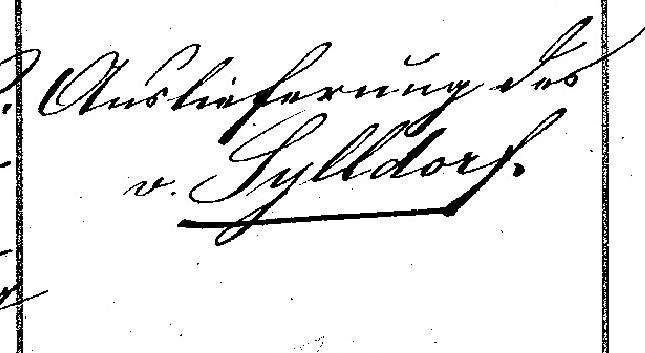 Auslieferung des
v. Sylldorf.